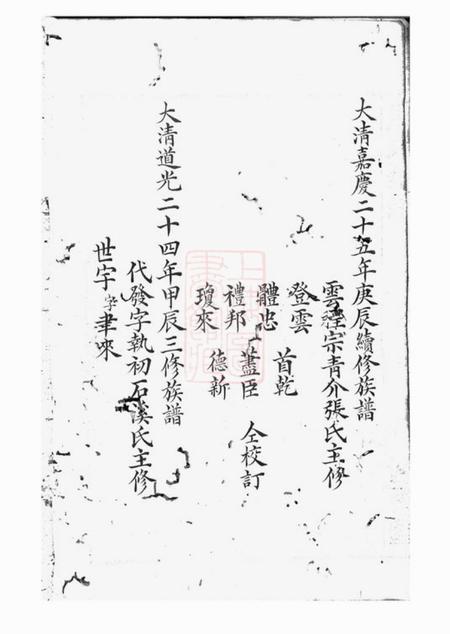 大清嘉慶二十五年庚辰續修族譜
雲程宗青介張氏主修
登雲 首乾
體忠 藎臣
禮邦 德新
瓊來
仝校訂
大清道光二十四年甲辰三修族譜
代發字執初石溪氏主修
世字字聿來